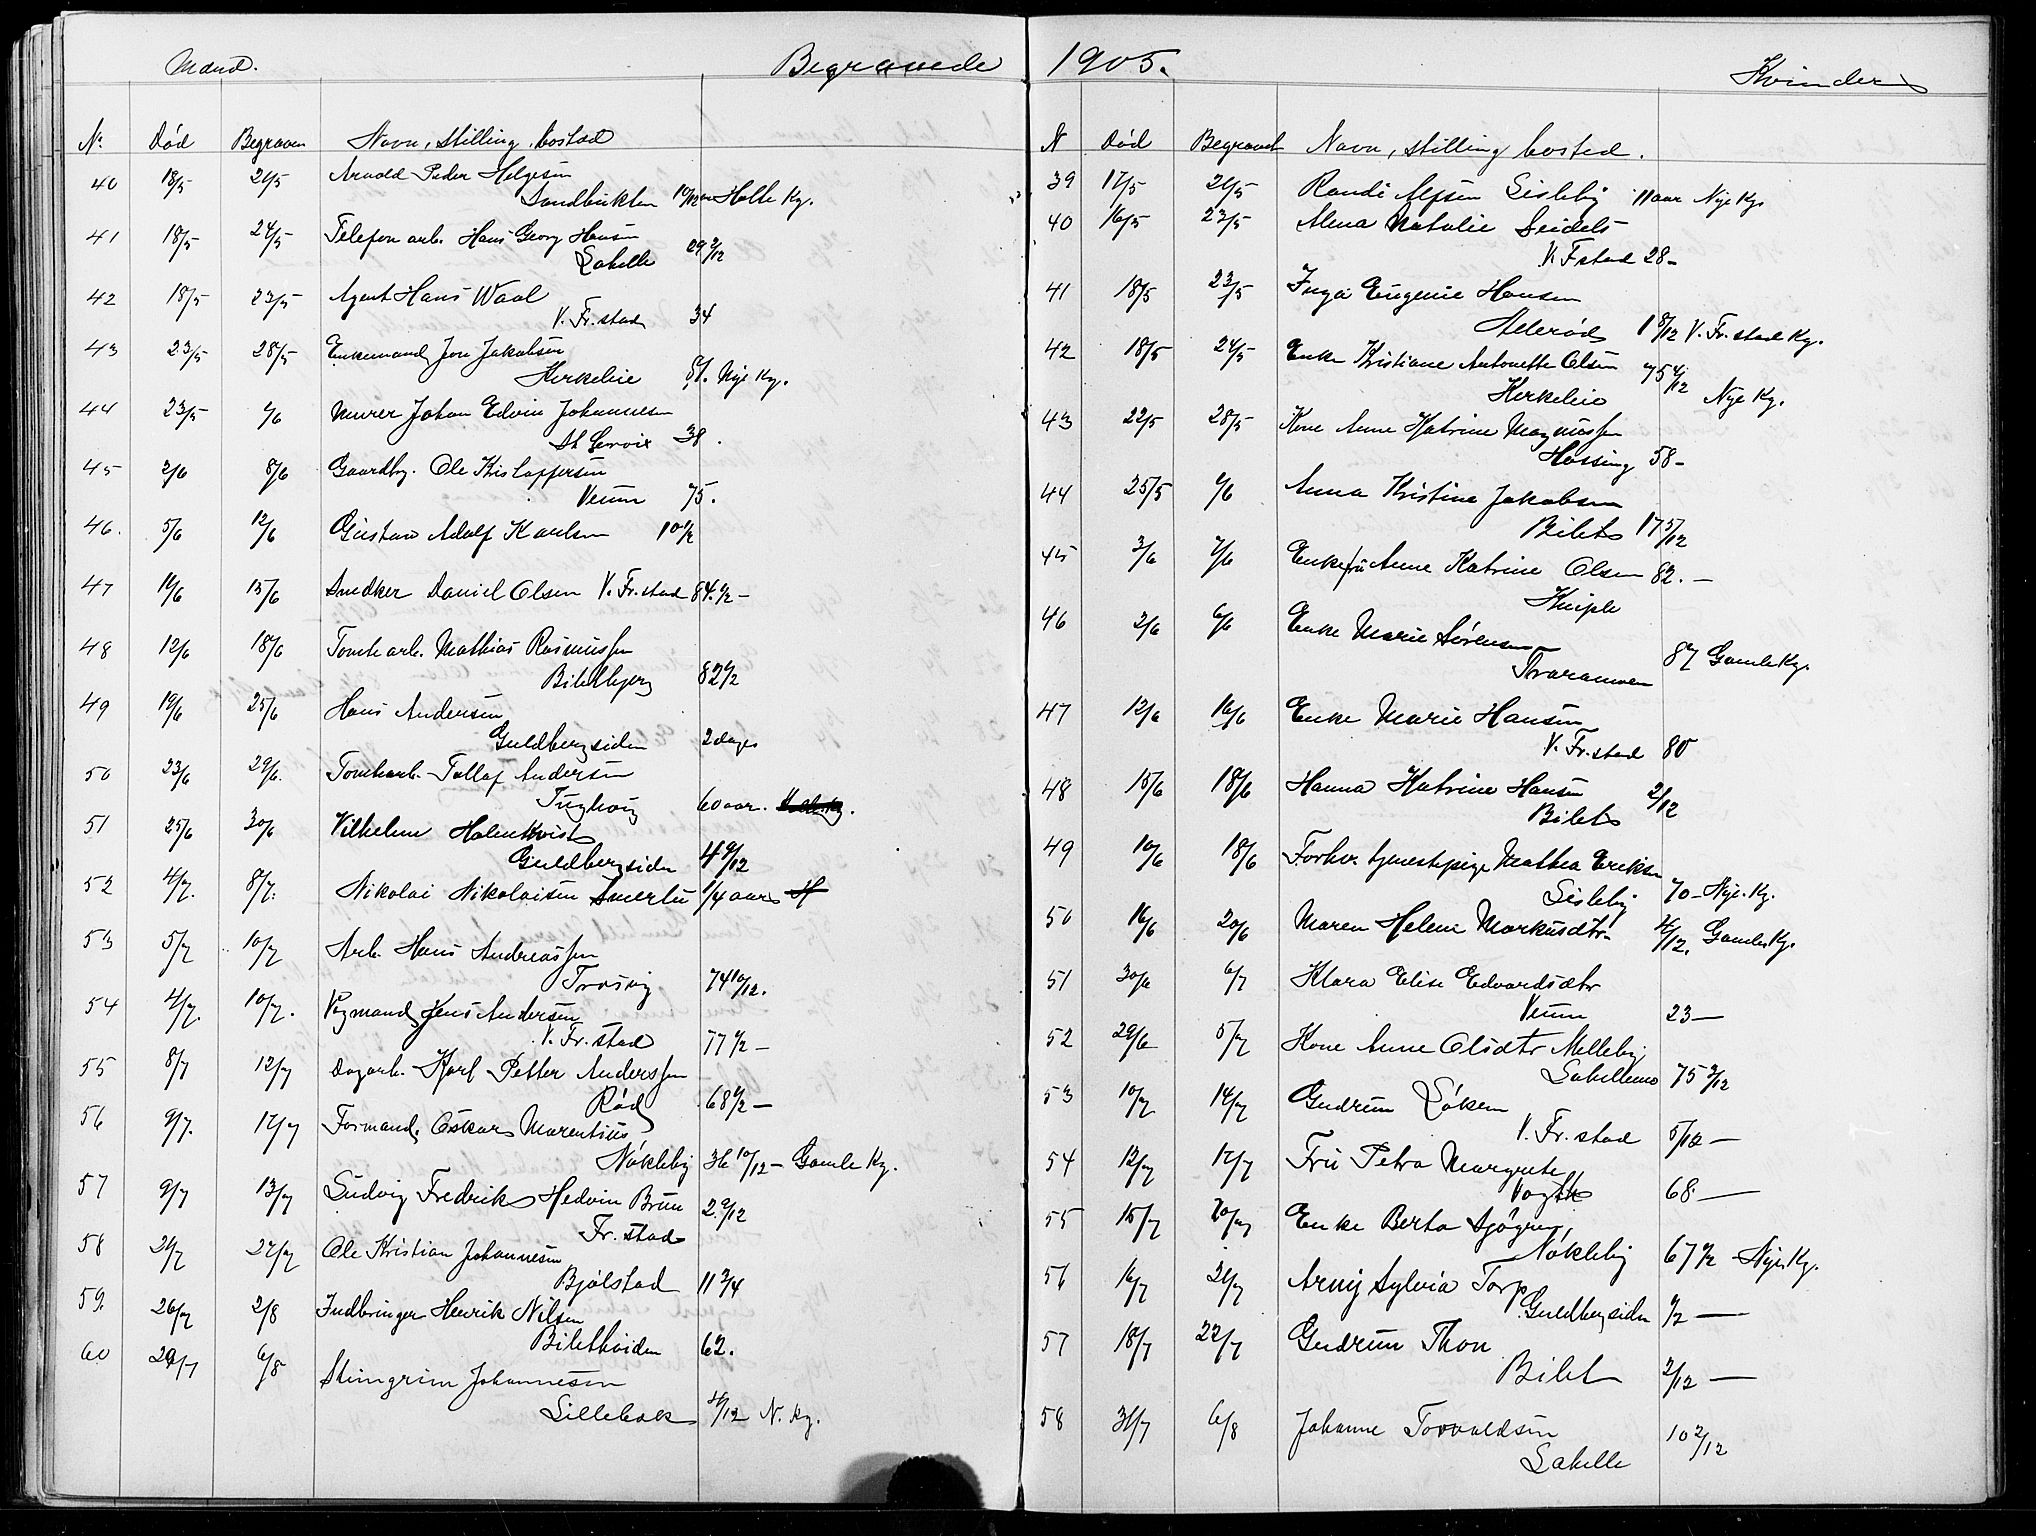 Mænd. Begravede
No Død Begraven Navn, stilling, bosted
40 18/5 21/5 Arnold Peder Helgesen
Sandbukten 10/12 Holte Kg.
41 18/5 24/5 Telefon arb. Hans Georg Hansen
Labelle 29 2/12
42 18/5 23/5 Agent Hans Waal
V. Fr. stad 34
43 23/5 28/5 Enkemand Jon Jakobsen
Kirkelie Nye Kg.
44 23/5 1/6 Murer Johan Edvin Johannesen
St Croix 38.
45 2/6 8/6 Gaardbr. Ole Kristoffersen
Veum 75.
46. 5/6 12/6 Gustav Adolf Karlsen 10 1/2
47 10/6 15/6 Snedker Daniel Olsen V. Fr. stad 84 1/2 –
48 12/6 18/6 Tomtearb. Mathias Rasmussen
Biletbjerg 82 1/2
49 19/6 25/6 Hans Andersen
Guldbergsiden 2 dage
50 23/6 29/6. Tomtearb. Tollef Andersen
60 aar.
51 25/6 30/6 Vilhelm Holmkvist
Guldbergsiden 4 9/12
52 4/7. 8/7. Nikolai Nikolaisen Smertu 1/4 aar
53 5/7 10/7 Arb. Hans Andreassen
Trosvig 74 10/12.
54 4/7. 10/7. Vognmand Jens Andersen
V. Fr. stad 77 1/2 –
55 8/7 12/7 Dagarb. Karl Petter Anderssen
Rød 68 1/2 –
56 9/7. 17/7 Formand Oskar Marentius
Nøkleby 36 10/12 – Gamle Kg.
57 9/7 13/7 Ludvig Fredrik Hedvin Brun 2 9/12
Fr. stad
58 21/7 27/7 Ole Kristian Johannesen
Bjølstad 11 3/4
59. 26/7 2/8 Indbringer Henrik Nilsen
Bilethøiden 62.
60 29/7 6/8 Steingrim Johannesen
Lillebæk 4/12 N. Kg.
1905. Kvinder
N Død Begravet Navn, stilling bosted.
39 17/5 21/5 Randi Alfsen Gisleby 11 aar Nye Kg.
40 16/5 23/5 Alma Natalie Seidels
V. Fstad 28 –
41 18/5 23/5 Inga Eugenie Hansen
Allerød 1 8/12 V. Fr. stad Kg.
42 18/5 24/5 Enke Kristiane Antonette Olsen 75 4/12
Kirkelie Nye Kg.
43 22/5 28/5 Kone Anne Katrine Magnussen
Hassing 58 –
44 25/5 1/6 Anna Kristine Jakobsen
Bilet 17 5/12
45 2/6 7/6 Enkefru Anne Katrine Olsen 82. –
Kniple
46 2/6 6/6 Enke Marie Sørensen
Traramoen 87 Gamle Kg.
47 12/6 16/6 Enke Marie Hansen
V. Fr. stad 80
48 15/6 18/6 Hanna Katrine Hansen 2/12
Bilet
49 10/6 18/6 Forhv. tjenestepige Mathea Eriksen
Gisleby 70 – Nye Kg.
50 16/6 20/6 Maren Helene Markusdtr. 4/12. Gamle Kg.
51 30/6 6/7 Klara Elise Edvardsdtr
Veum 23 –
52 29/6 5/7 Kone Anne Olsdtr Melleby
Labellemo 75 2/12
53 10/7 14/7 Gudrun Løken
V. Fr. stad 5/12 –
54 12/7 17/7 Fru Petra Margrete
Vogt 68 –
55 15/7 20/7 Enke Berta Sjøgren,
Nøkleby 67 1/2 Nye Kg.
56 16/7 21/7 Arny Sylvia Torp
Guldbergsiden 1/2 –
57 18/7 22/7 Gudrun Thon
Bilet 2/12 –
58 31/7 6/8 Johanne Torvaldsen
Labelle 10 2/12